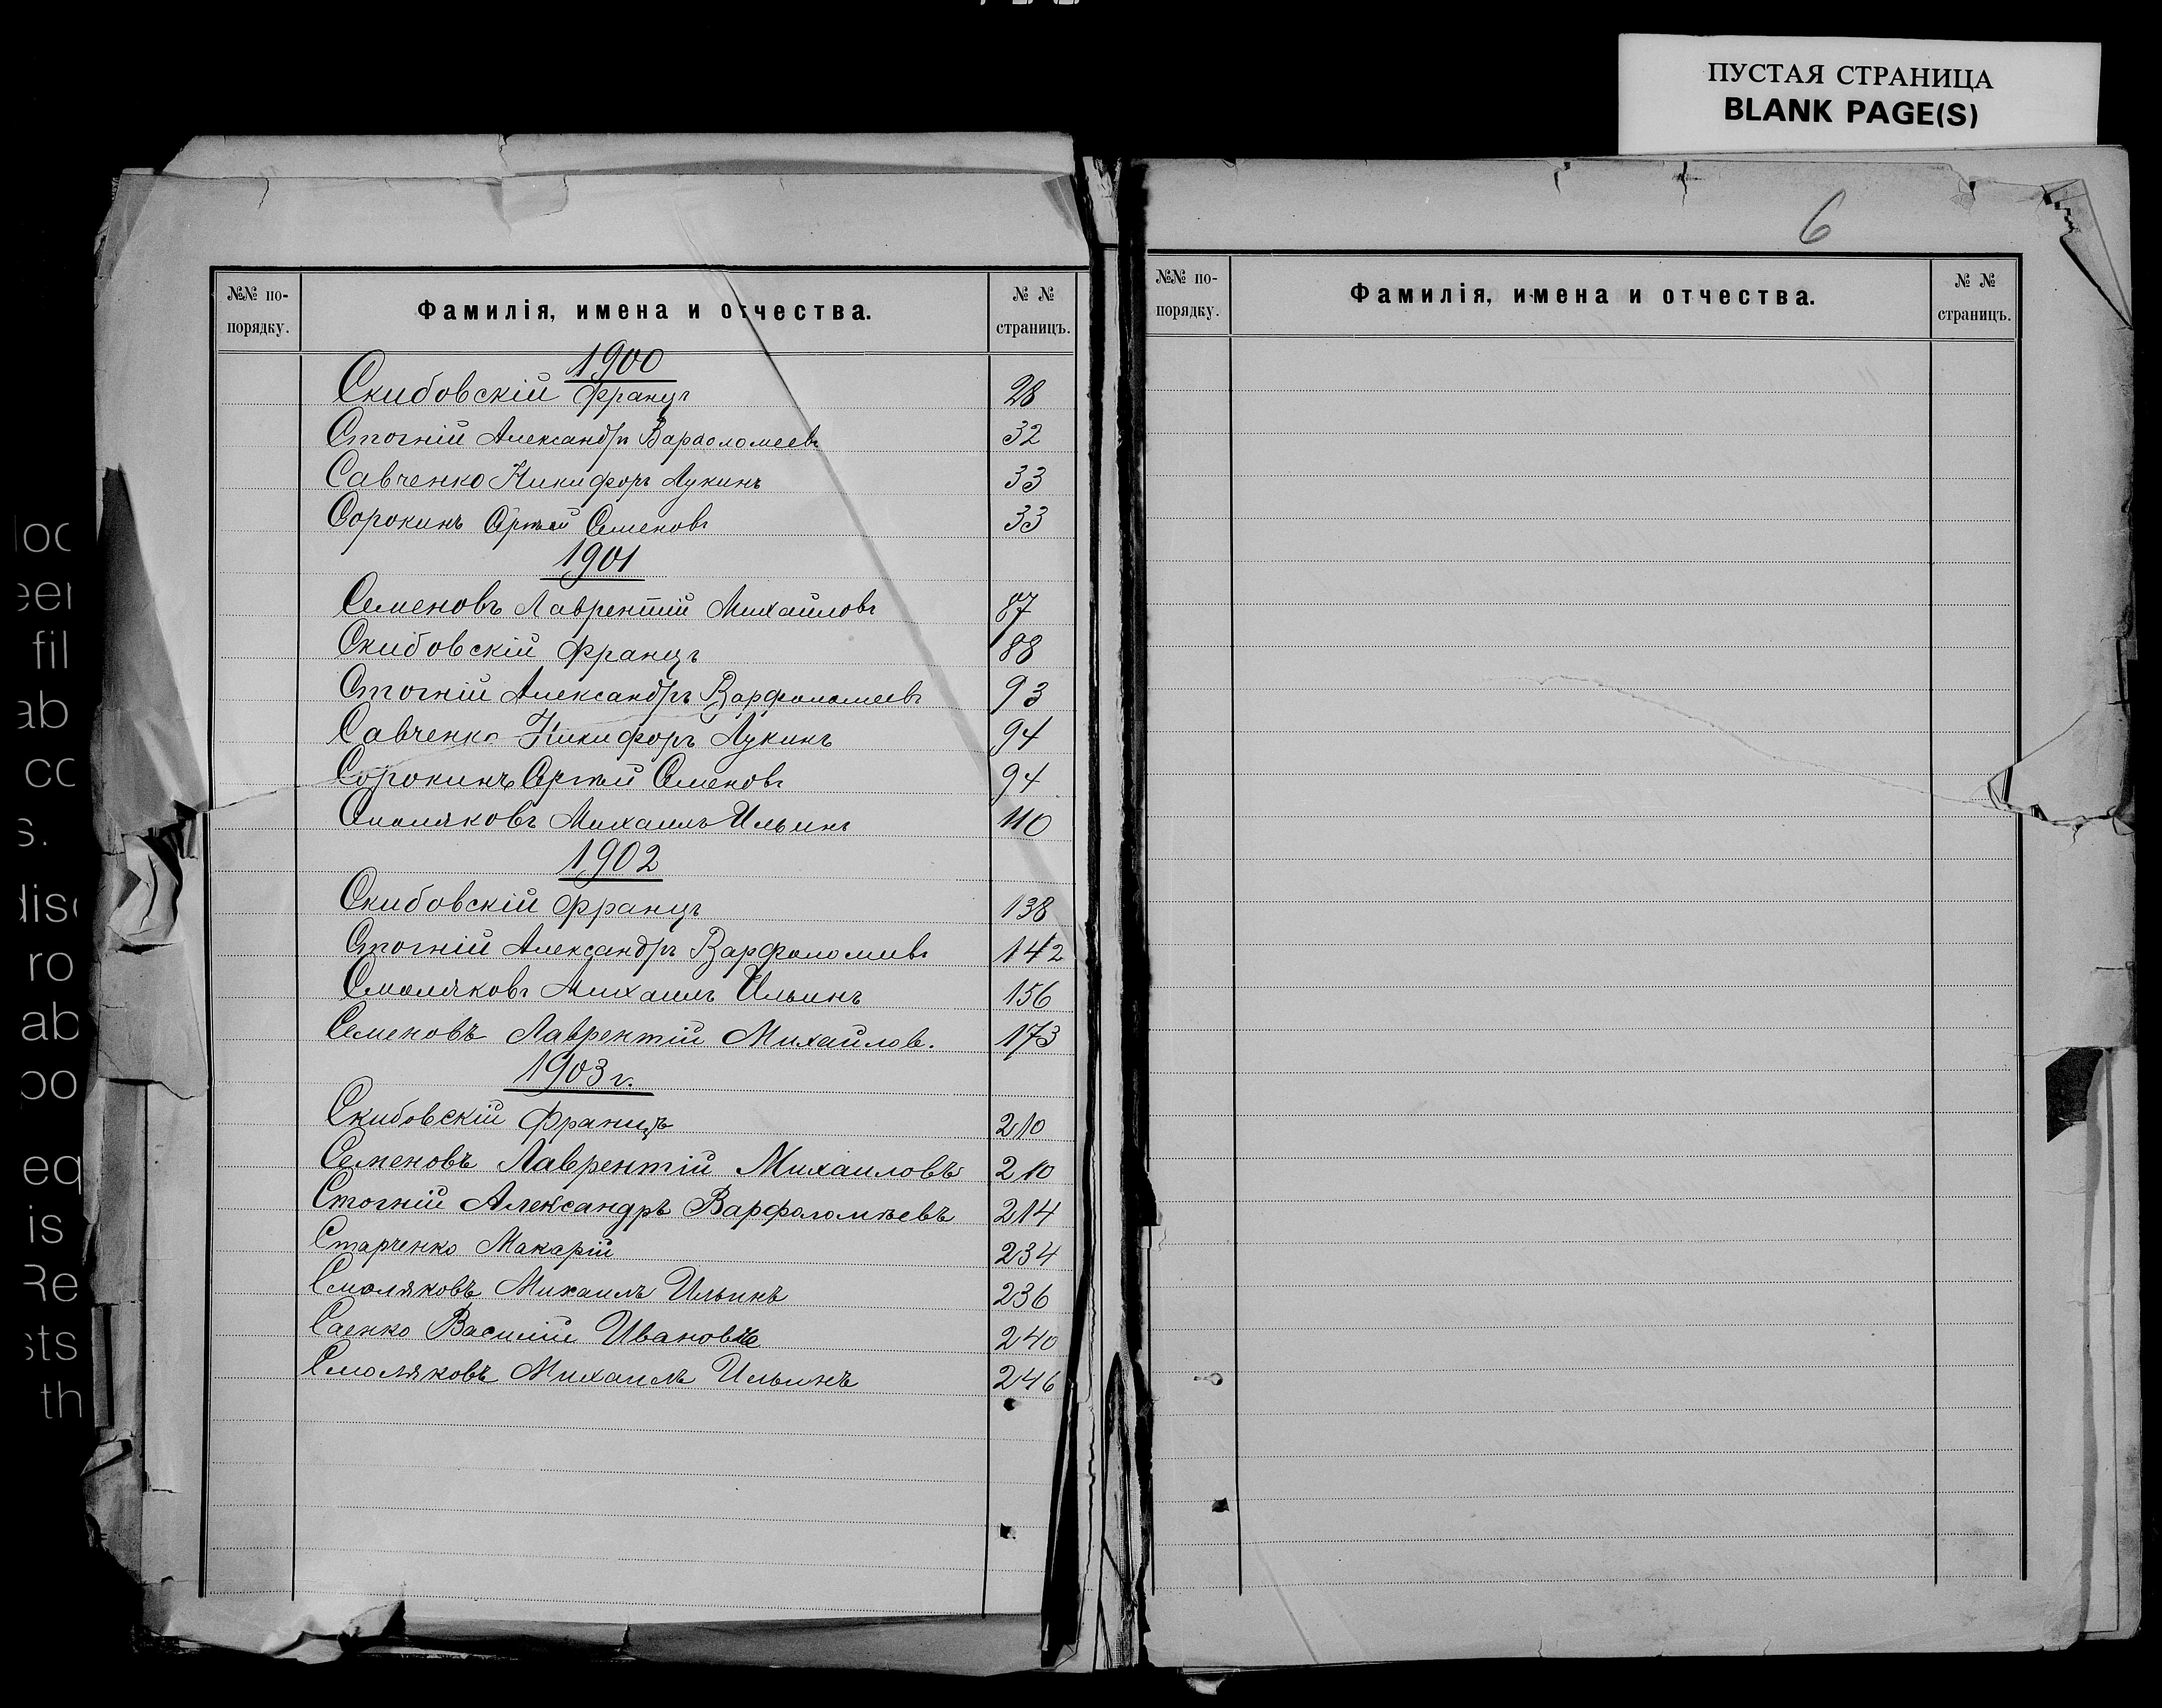 ПУСТАЯ СТРАНИЦА
BLANK PAGE(S)
6
№№ по-порядку. Фамилія, имена и отчества. № № страницъ.
1900
Скибовскій Францъ 28
Стогній Александръ Варѳоломеевъ 32
Савченко Никифоръ Лукинъ 33
Сорокинъ Семеновъ 33
1901
Семеновъ Лаврентій Михайловъ 87
Скибовскій Францъ 88
Стогній Александръ Варфоломеевъ 93
Савченко Никифоръ Лукинъ 94
Сорокинъ Семеновъ 94
Смоляковъ Михаилъ Ильинъ 110
1902
Скибовскій Францъ 138
Стогній Александръ Варфоломеевъ 142
Смоляковъ Михаилъ Ильинъ 156
Семеновъ Лаврентій Михайлов. 173
1903 г.
Скибовскій Францъ 210
Семеновъ Лаврентій Михаиловъ 210
Стогній Александръ Варфоломѣевъ 214
Старченко Макарій 234
Смоляковъ Михаилъ Ильинъ 236
Саенко Василій 240
Смоляковъ Михаилъ Ильинъ 246
№№ по-порядку. Фамилія, имена и отчества. № № страницъ.